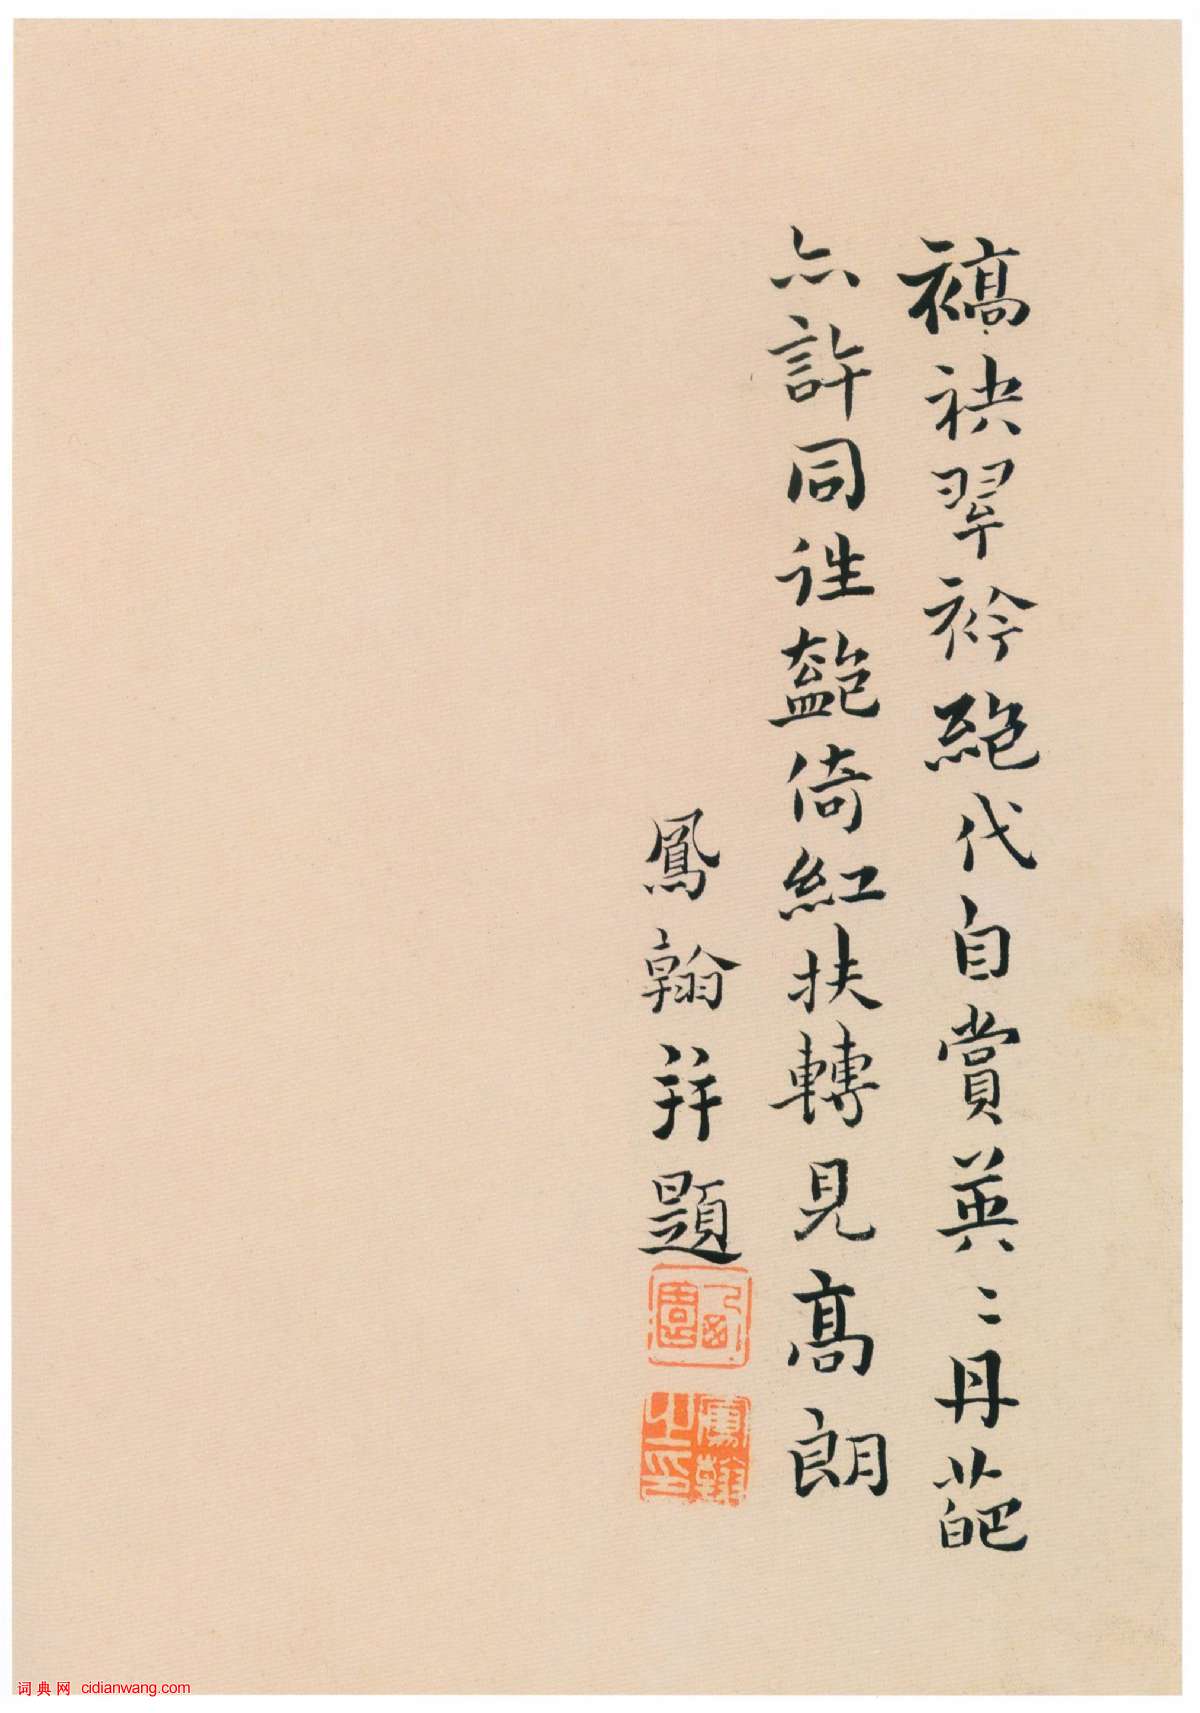 縞袂翠衿絶代自賞英〻丹葩
亦許同往艷倚紅扶轉見高朗
鳳翰并題
鳳翰之印
词典网 cidianwang.com